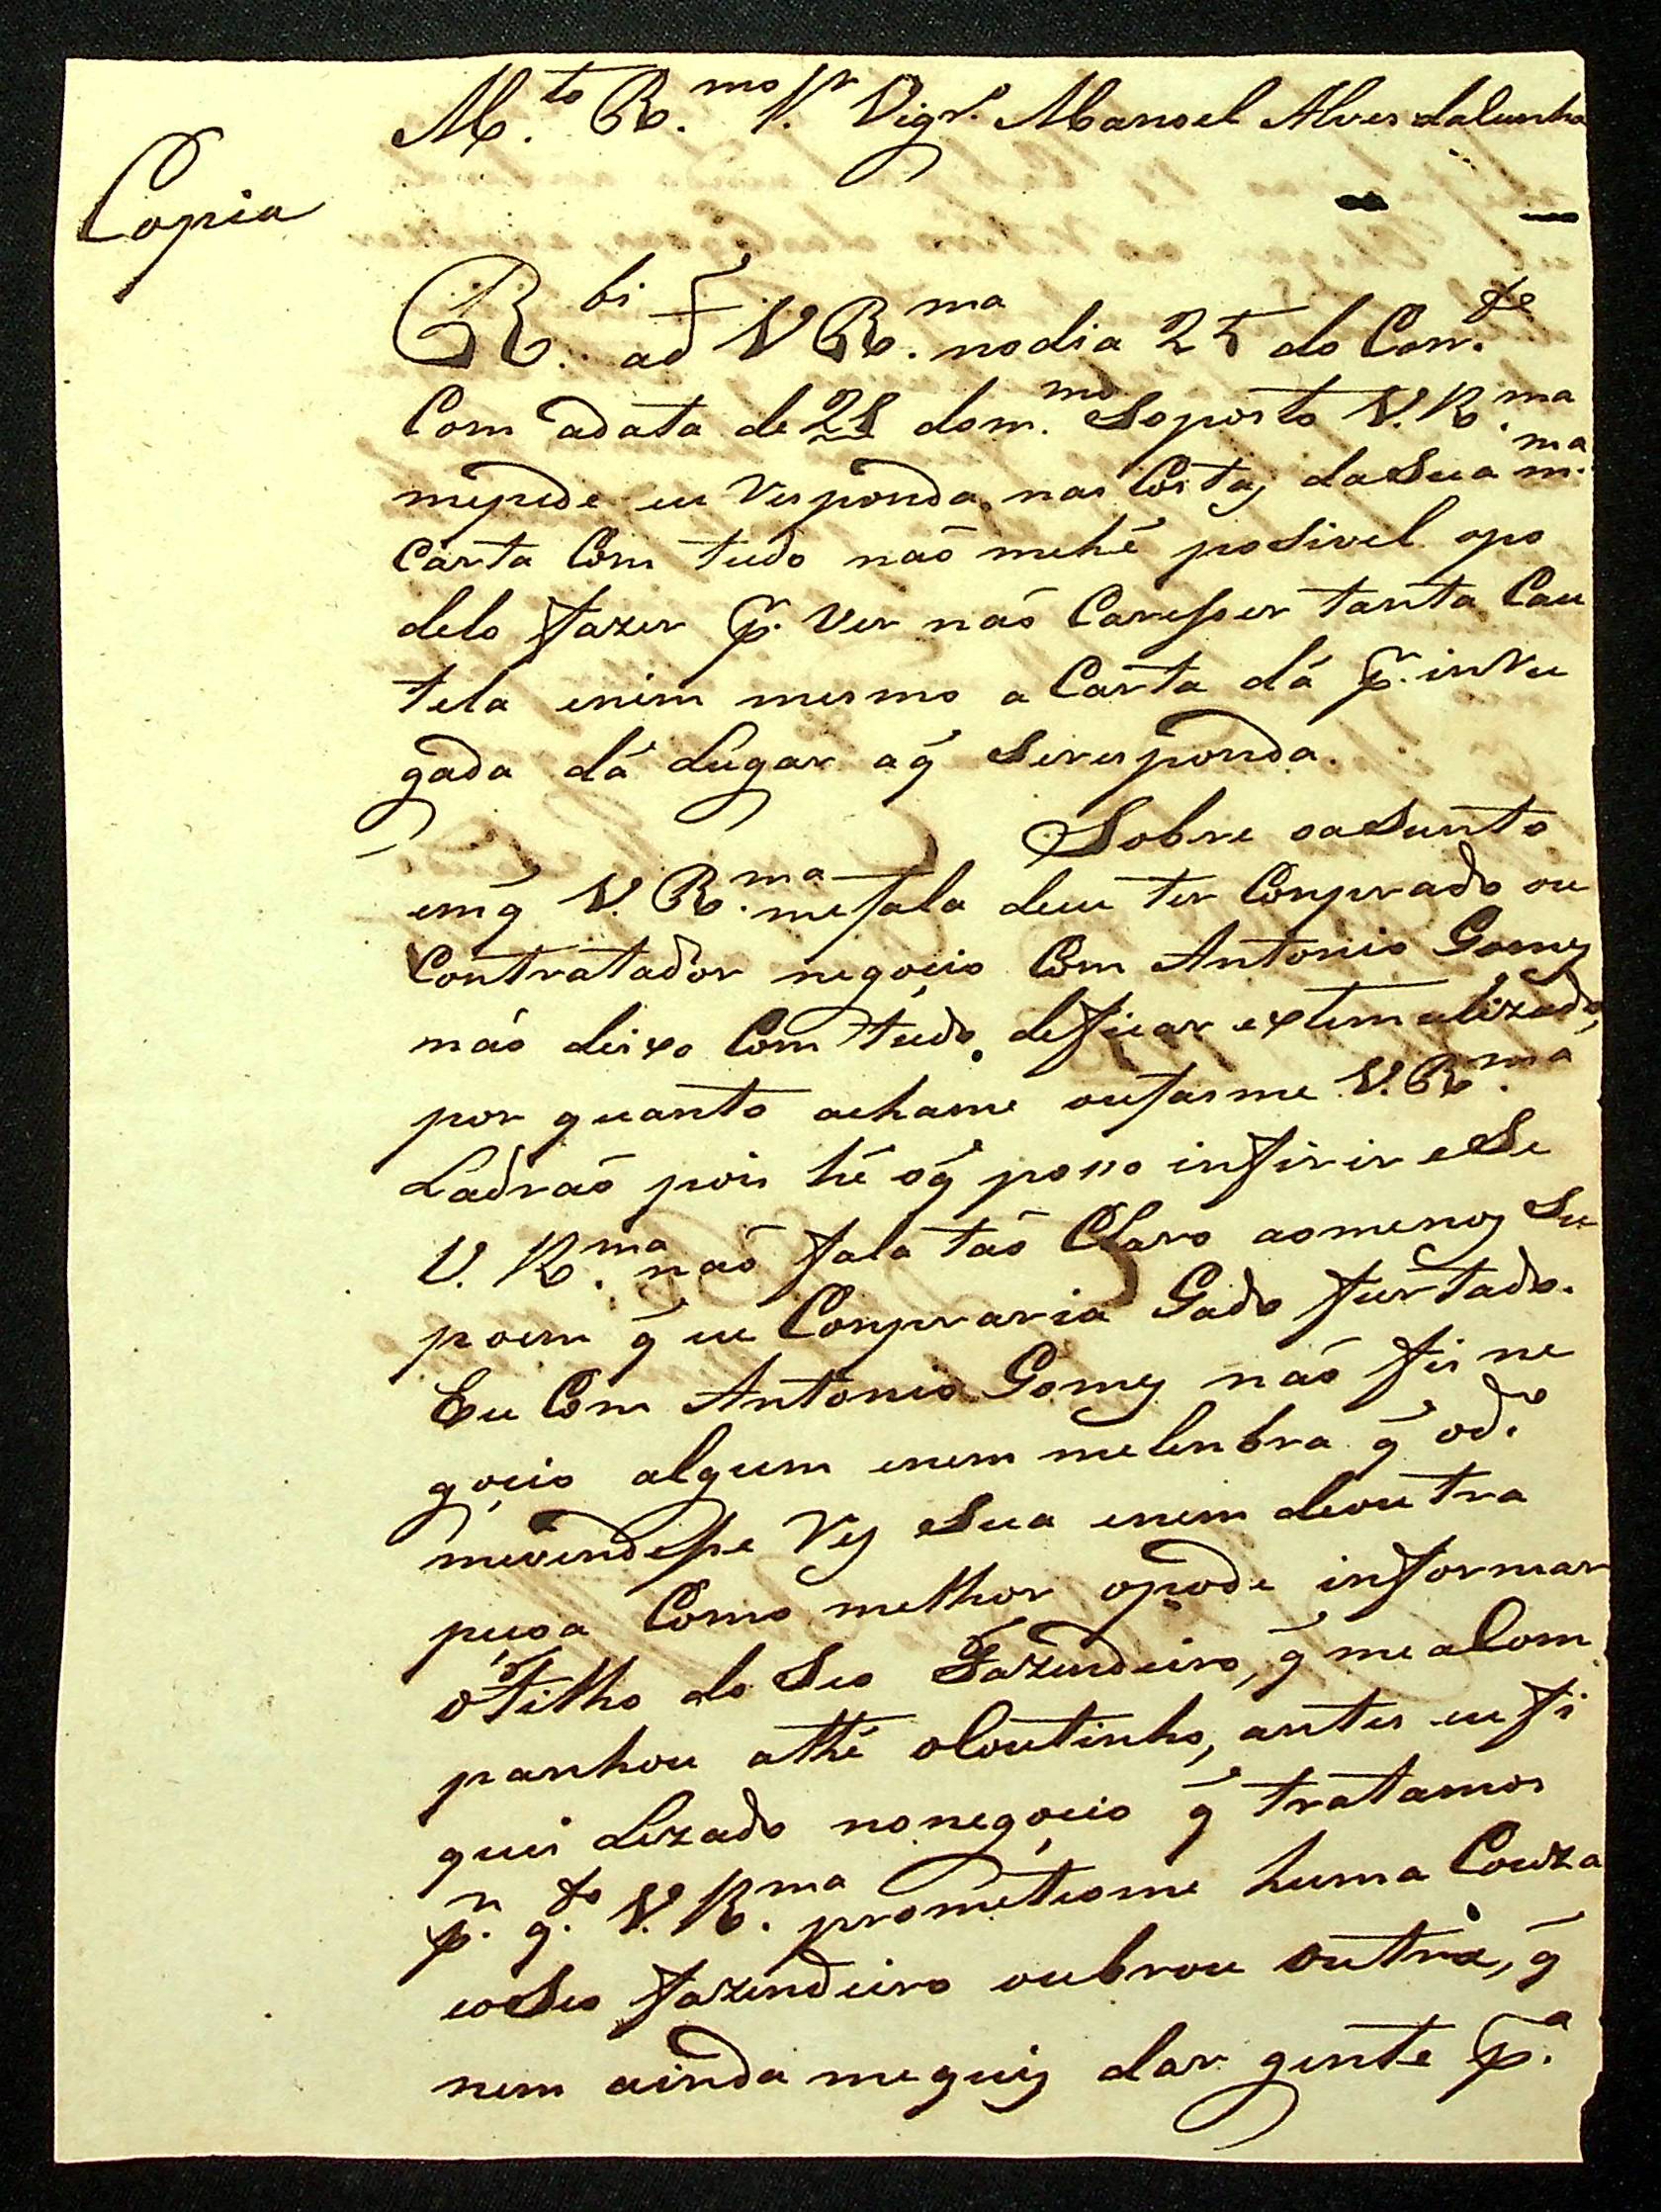 M.to R.mo Sr. Vigr.o Manoel Alves daCunha
Copia
R.bi a de V R.ma no dia 25 do Corr.te
Com adata de 28 dom.mo Soposto V. R.ma
mepede eu responda nas Costas da Sua m.ma
Carta Com tudo não mehé posivel opo
delo fazer pr. ver não Caresser tanta Cau
tela enim mesmo a Carta dá pr. inru
gada dá Lugar aq̃ Seresponda.
Sobre oaSunto
emq̃ V. R.ma mefala deeu ter Conprado ou
Contratador negoçio Com Antonio Gomes
não deixo Com tudo deficar extimalizado,
por quanto achame oufasme V. R.ma
Ladrão pois hé oq̃ poso infirir eSe
V. R.ma não fala tão Claro aomenos Su
poem q̃ eu Conpraria Gado furtado.
Eu Com Antonio Gomes não fis ne
goçio algum enem melenbra q̃ od.o
mevendesse Res Sua enem deoutra
peçoa Como melhor opode informar
o Filho do Seo Fazendeiro, q̃ me aCom
panhou athé oCoutinho, antes eu fi
quei Lezado nonegoçio q̃ tratamos
pr. q.to V. R.ma prometeome huma Couza
eoSeo fazendeiro oubrou outra, q̃
nem ainda mequis dar gente p.a